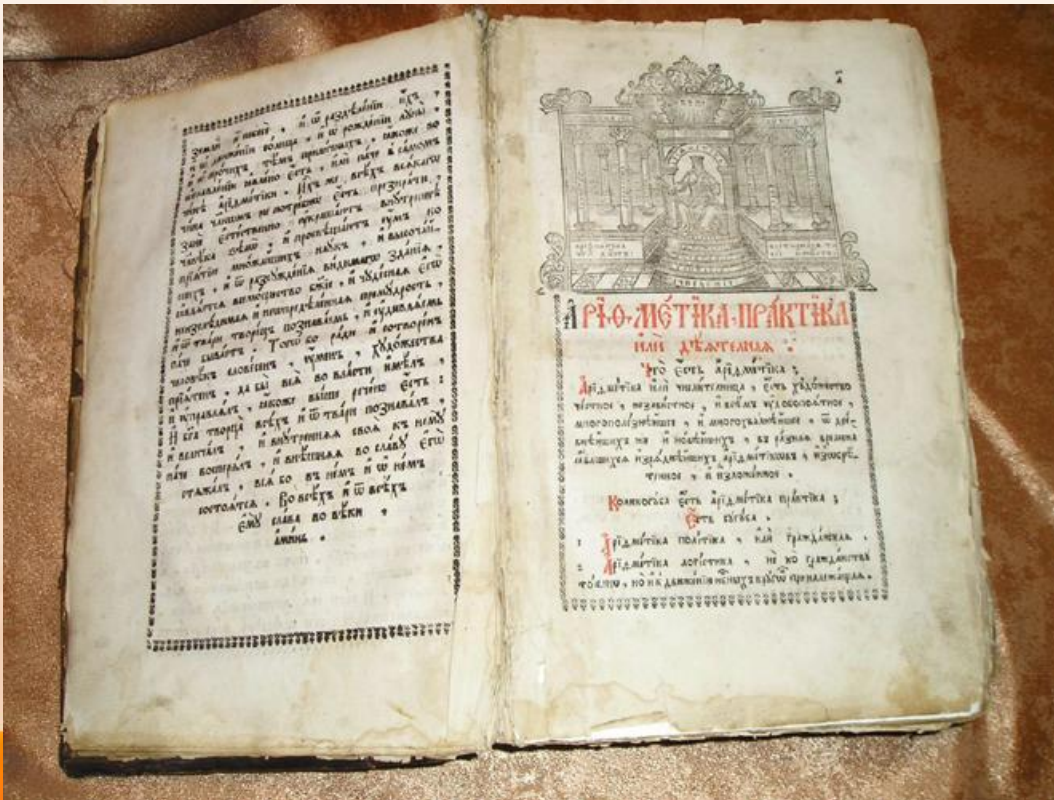 земли и небесе , и ѿ раздѣленїи ихъ ,
и ѿ движенїи солнца , и ѿ рожденїи луны ,
и ѿ прочихъ , тѣмъ приличныхъ , якоже во
явленїи явлено есть , или паче в самомъ
арїѳметїки . Ихъ же всѣхъ всякагѡ
чина не потребно есть
естественно украшаетъ внутреннѧ
человѣка и просвѣщаетъ умъ ко
прїятїю множайшихъ наукъ , и высочай-
шихъ , и ѿ разсужденїя видимагѡ зданїя ,
всемогущество бж҃їе , и чудесная егѡ
неизслѣдимая и неопредѣленная премудрость ,
и ѿ твари творецъ познаваемь , и удивляемь
паче бываетъ . Тогѡ бо ради и сотворенъ
человѣкъ словесенъ , уменъ , художества
прїятенъ , да бы вся во власти имѣлъ ,
и управлялъ , якоже выше речено есть :
И бг҃а творца всѣхъ и ѿ твари познавалъ ,
и величалъ , и внутренняя своя къ нему
паче вперялъ , и внѣшняя во славу егѡ
стяжалъ , вся бо въ немъ и ѿ немъ
состоятся . Во всѣхъ и ѿ всѣхъ
ему слава во вѣки ,
аминь .
а҃
АРІѲМЕ́ТІКА ПРА́КТІКА
или дѣятелная .
Что есть арїѳметїка ;
Арїѳметїка или числителница , есть художество
честное , независтное , и всѣмъ удобопонятное ,
многополезнѣйшее , и многохвалнѣйшее , ѿ дре-
внѣйшихъ же и новѣйшихъ , въ разная времена
явльшихся изряднѣйшихъ арїѳметїковъ , изѡбрѣ-
тенное , и изложенное .
Коликогуба есть арїѳметїка практїка ;
Есть сугуба .
1 Арїѳметїка полїтїка , или гражданская .
2 Арїѳметїка логїстїка , не ко гражданству
токмѡ , но и къ движенїю нб҃сныхъ круговъ принадлежащая .